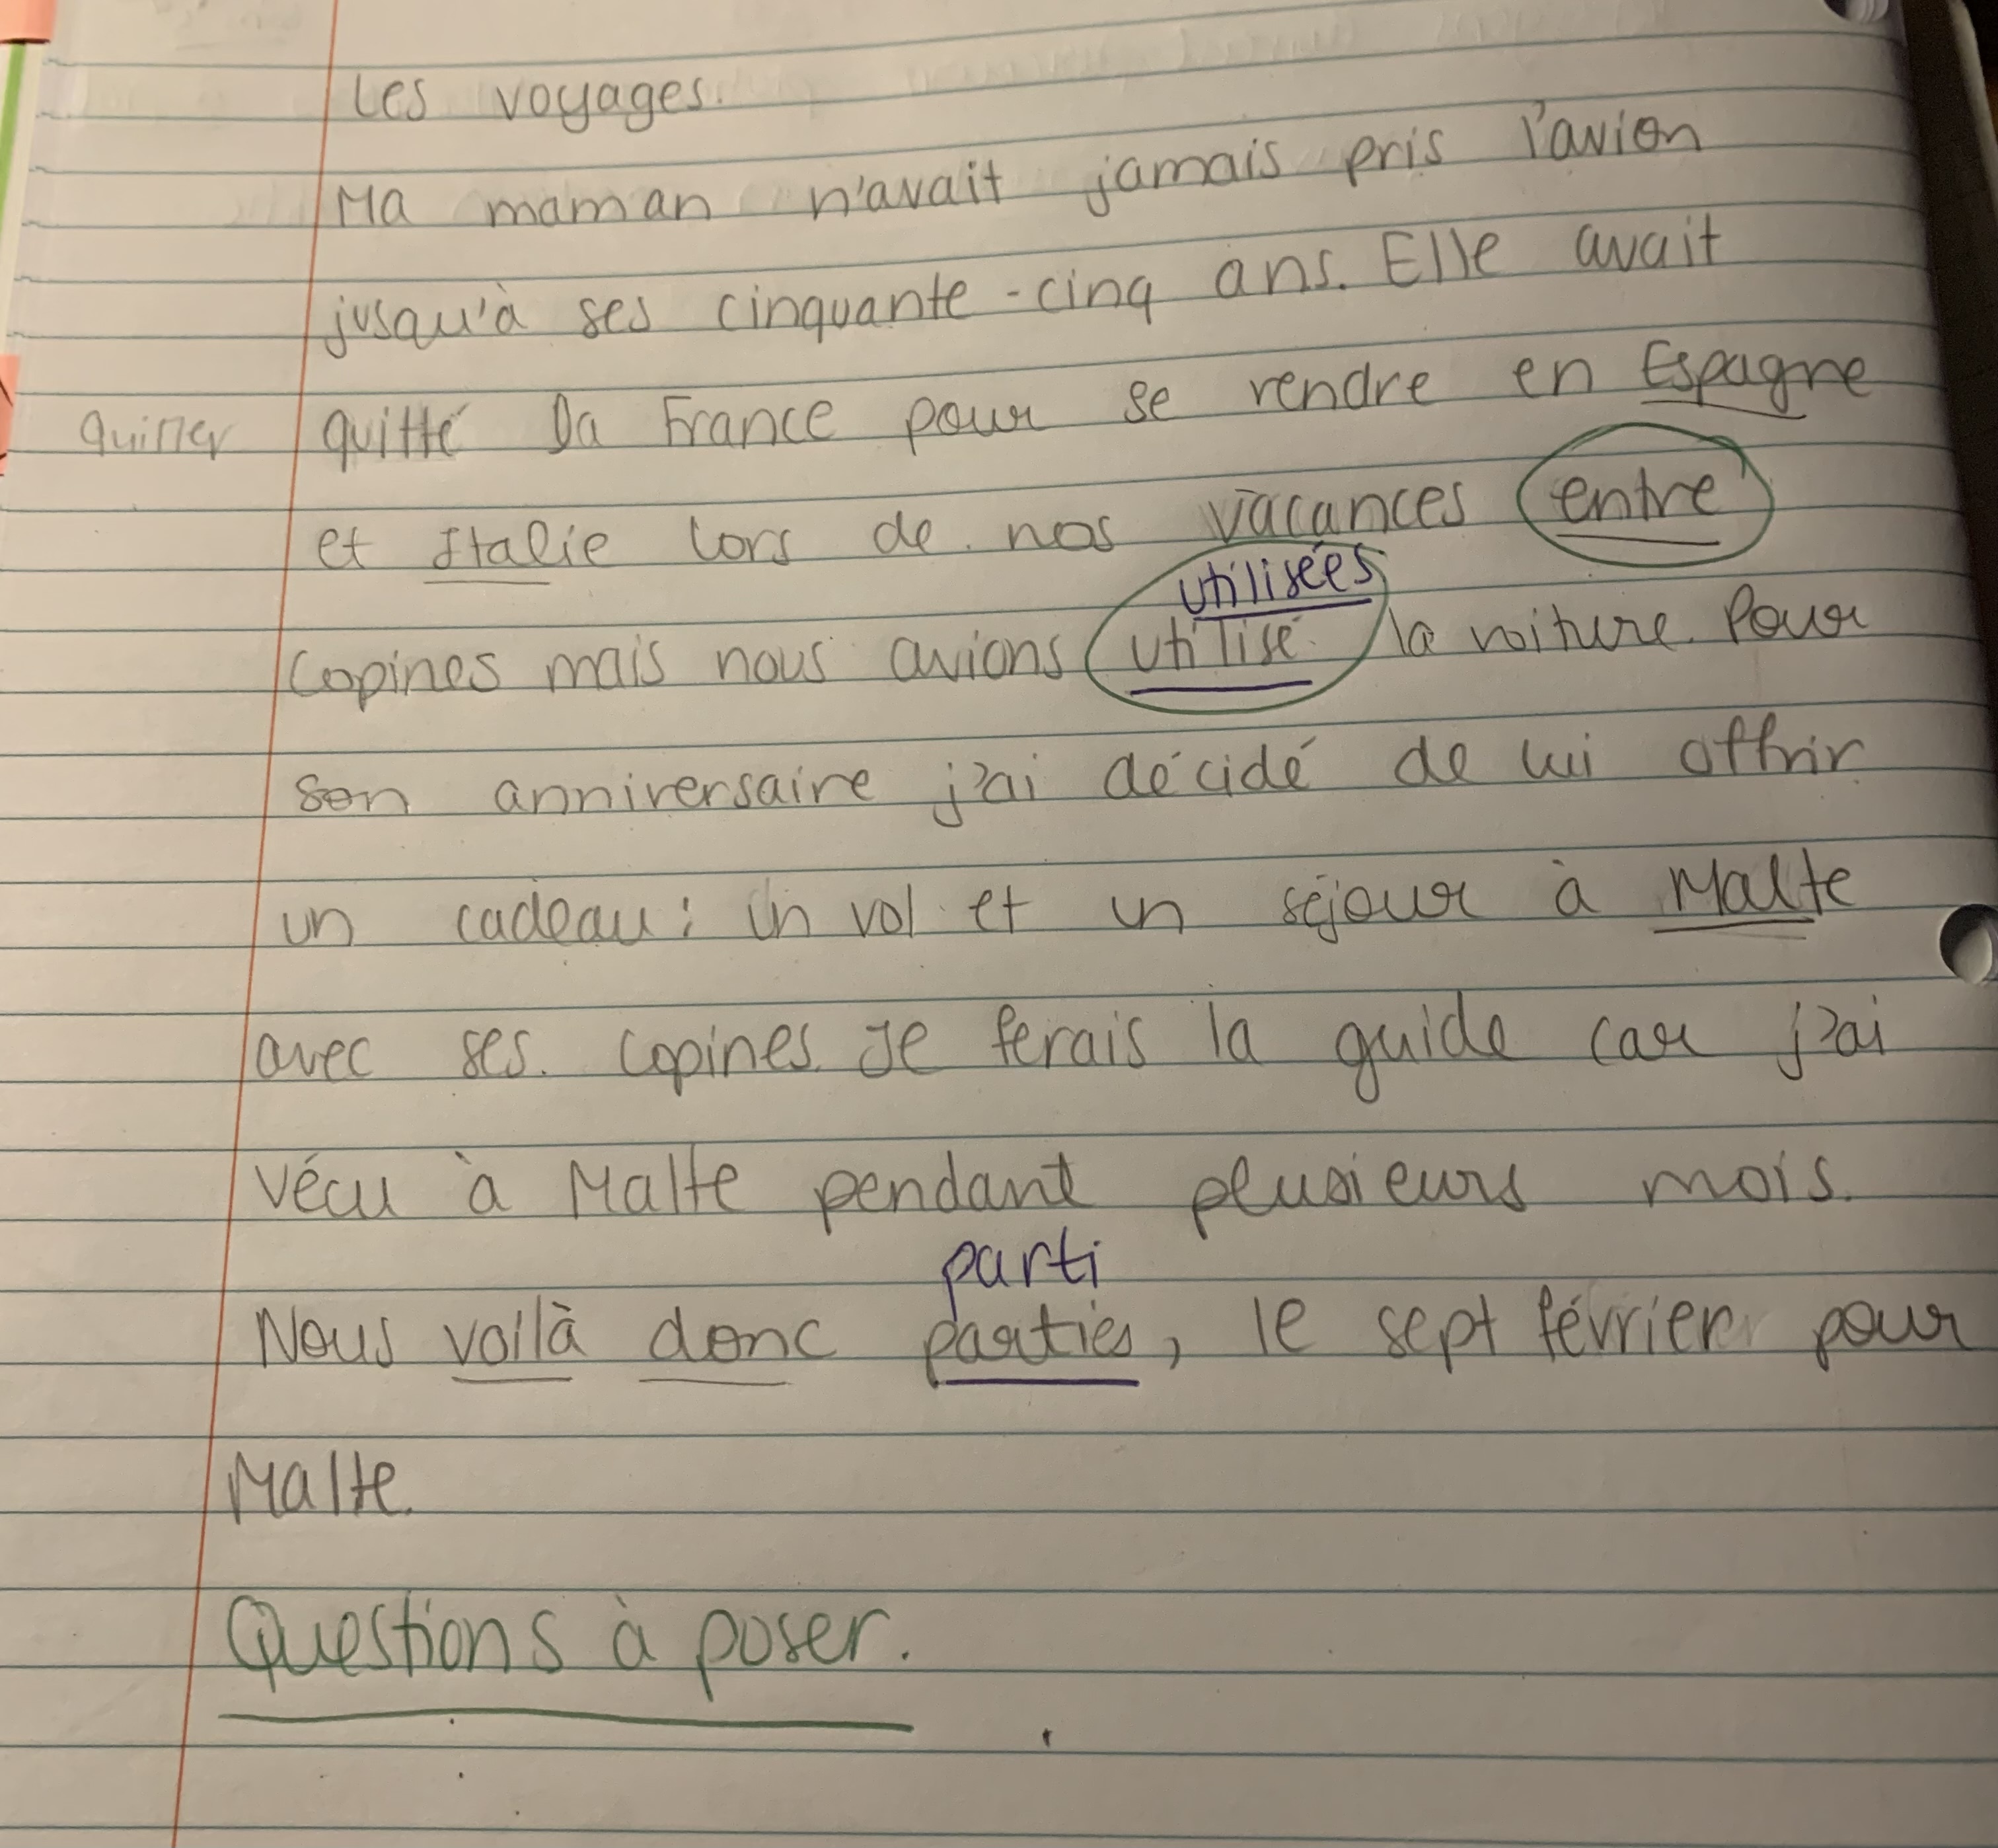 Les voyages.
Ma maman n'avait jamais pris l'avion
jusqu'à ses cinquante-cinq ans. Elle avait
quitter quitté la France pour se rendre en Espagne
et Italie lors de nos vacances entre
utilisées
copines mais nous avions utilisé la voiture. Pour
son anniversaire j'ai décidé de lui offrir
un cadeau : un vol et un séjour à Malte
avec ses copines. Je ferais la guide car j'ai
vécu à Malte pendant plusieurs mois.
parti
Nous voilà donc parties, le sept février pour
Malte.
Questions à poser.